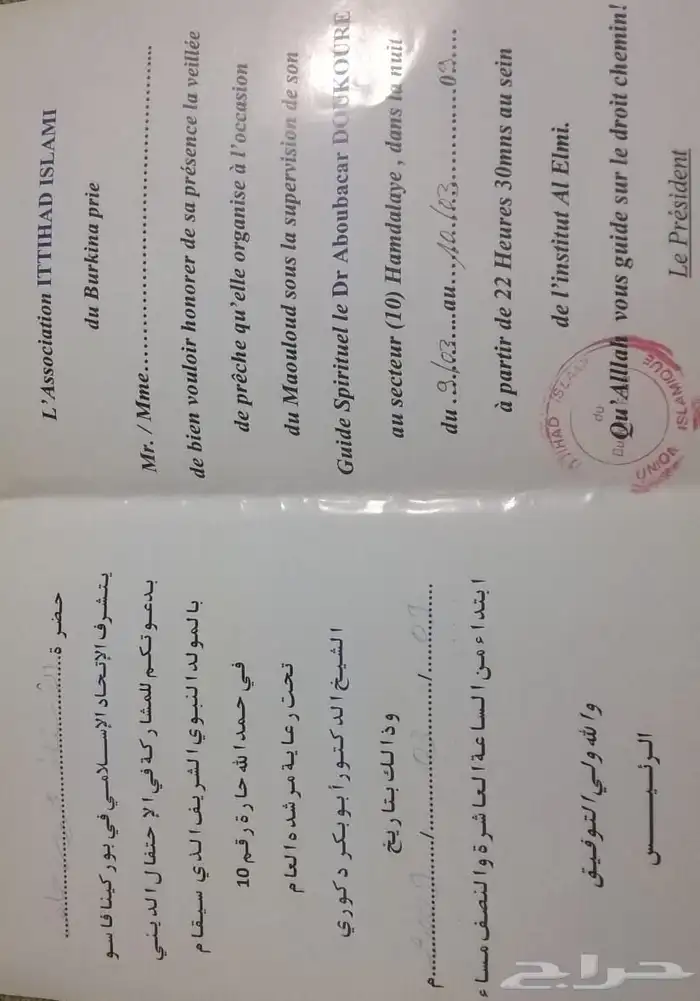 L'Association ITTIHAD ISLAMI
du Burkina prie
Mr. / Mme......................................................
de bien vouloir honorer de sa présence la veillée
de prêche qu'elle organise à l'occasion
du Maouloud sous la supervision de son
Guide Spirituel le Dr Aboubacar DOUKOURE
au secteur (10) Hamdalaye , dans la nuit
du ..9./03....au....10./03...............09....
à partir de 22 Heures 30mns au sein
de l'institut Al Elmi.
Qu'Alllah vous guide sur le droit chemin!
Le Président
ITTIHAD ISLAMI
du
UNION ISLAMIQUE
حضرة......................................................
يتشرف الإتحاد الإسلامي في بوركينا فاسو
بدعوتكم للمشاركة في الإحتفال الديني
بالمولد النبوي الشريف الذي سيقام
في حمد الله حارة رقم 10
تحت رعاية مرشده العام
الشيخ الدكتور أبوبكر دكوري
وذالك بتاريخ
........../............../..............م
ابتداء من الساعة العاشرة والنصف مساء
والله ولي التوفيق
الرئيس
حراج